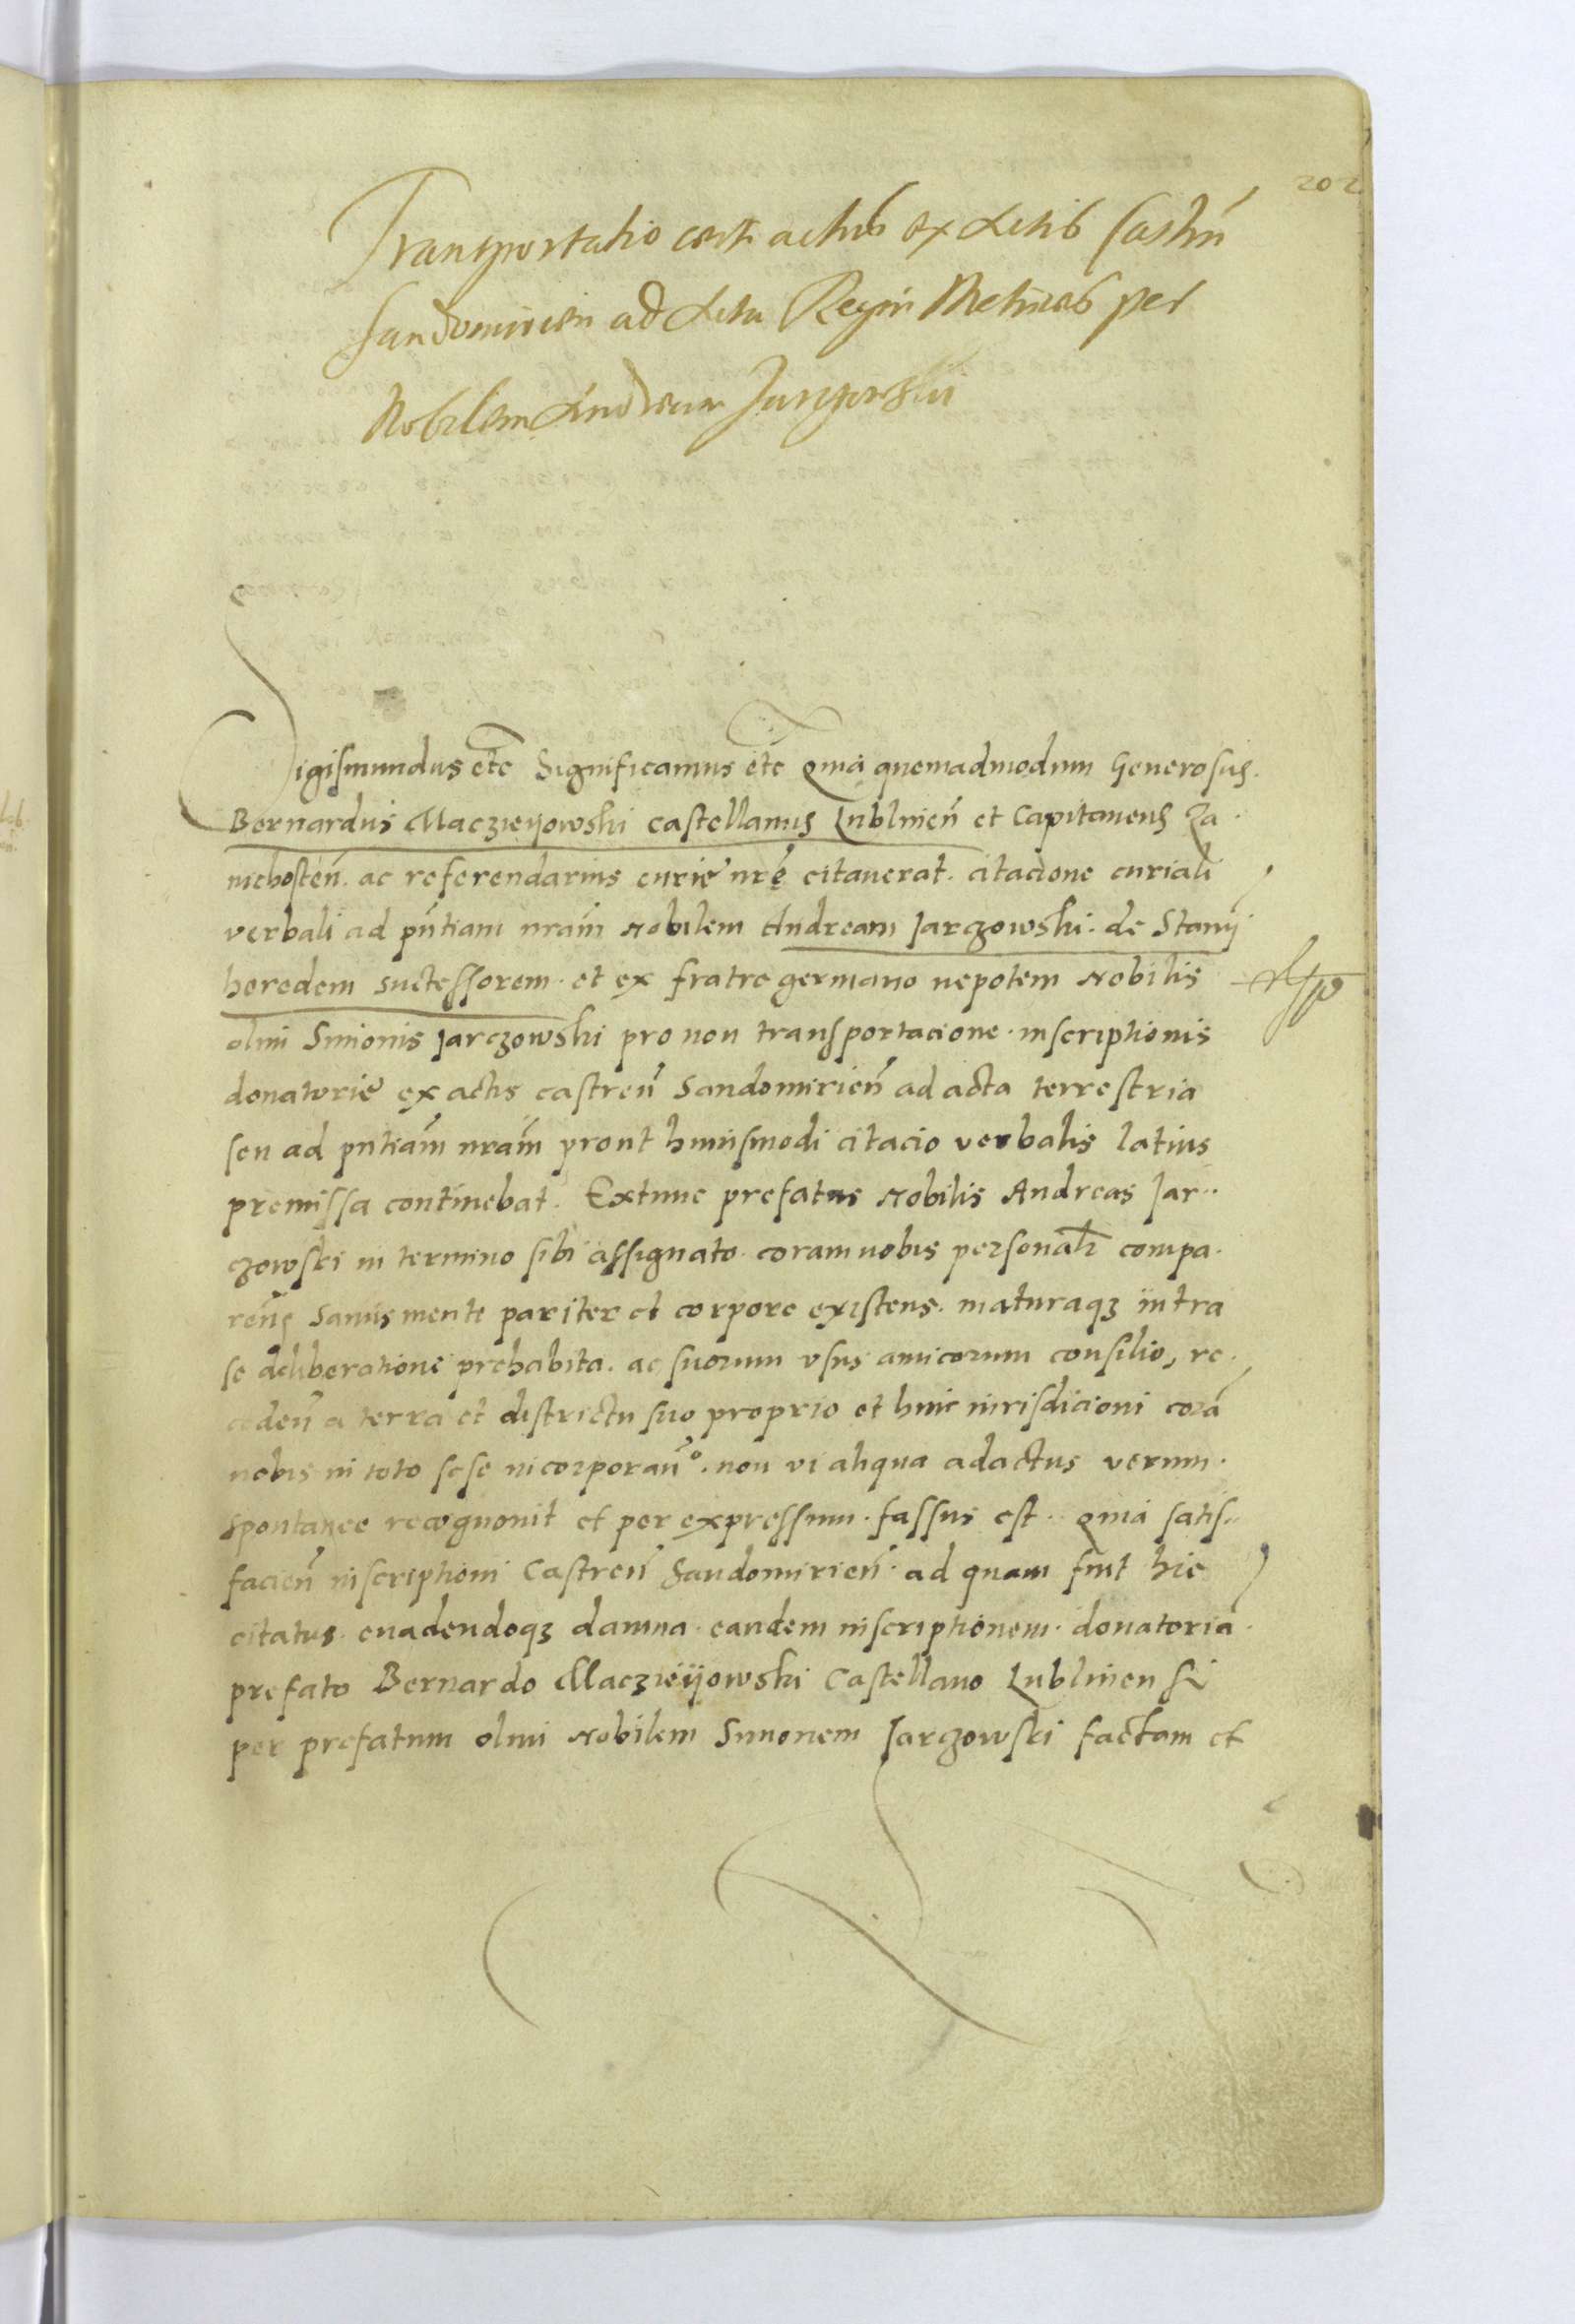 202
Transportatio certi actus ex Actis Castrn̄
Sandomirien ad Acta Regni Metrices per
Nobilem Andream Jarzowski
Sigismundus etc̄ Significamus etc̄ Quia quemadmodum Generosus.
Bernardus Maczieyowski castellanus Lublinen̄ et Capitaneus Za.
nichosten̄. ac referendarius curie nrę citauerat. citacione curiali
verbali ad pn̄tiam nram̄ Nobilem Andream Jarczowski. de Stanij
heredem successorem. et ex fratre germano nepotem Nobilis
olim Simonis Jarczowski pro non transportacione. inscriptionis
donatorie ex actis castren̄ Sandomirien̄ ad acta terrestria
seu ad pn̄tiam̄ nram̄ prout huiusmodi citacio verbalis latius
premissa continebat. Extunc prefatus Nobilis Andreas Jar..
czowski in termino sibi assignato. coram nobis personalr̄ compa.
ren̄s Sanus mente pariter et corpore existens. maturaqʒ intra
se deliberatione prehabita. ac suorum vsus amicorum consilio, re.
ceden̄ a terra et districtu suo proprio et huic iurisdicioni corā
nobis in toto sese incorporan̄º. non vi aliqua adactus verum.
Spontanee recognouit et per expressum. fassus est. quia satis..
facien̄ inscriptioni Castren̄ Sandomirien̄. ad quam fuit hic
citatus. euadendoqʒ damna. eandem inscriptionem. donatoriā.
prefato Bernardo Maczieyowski Castellano Lublinensi
per prefatum olim Nobilem Simonem Jarczowski factam et